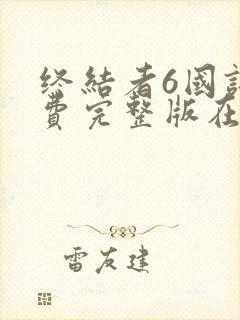 终结者6國
費完整版在
雷友建